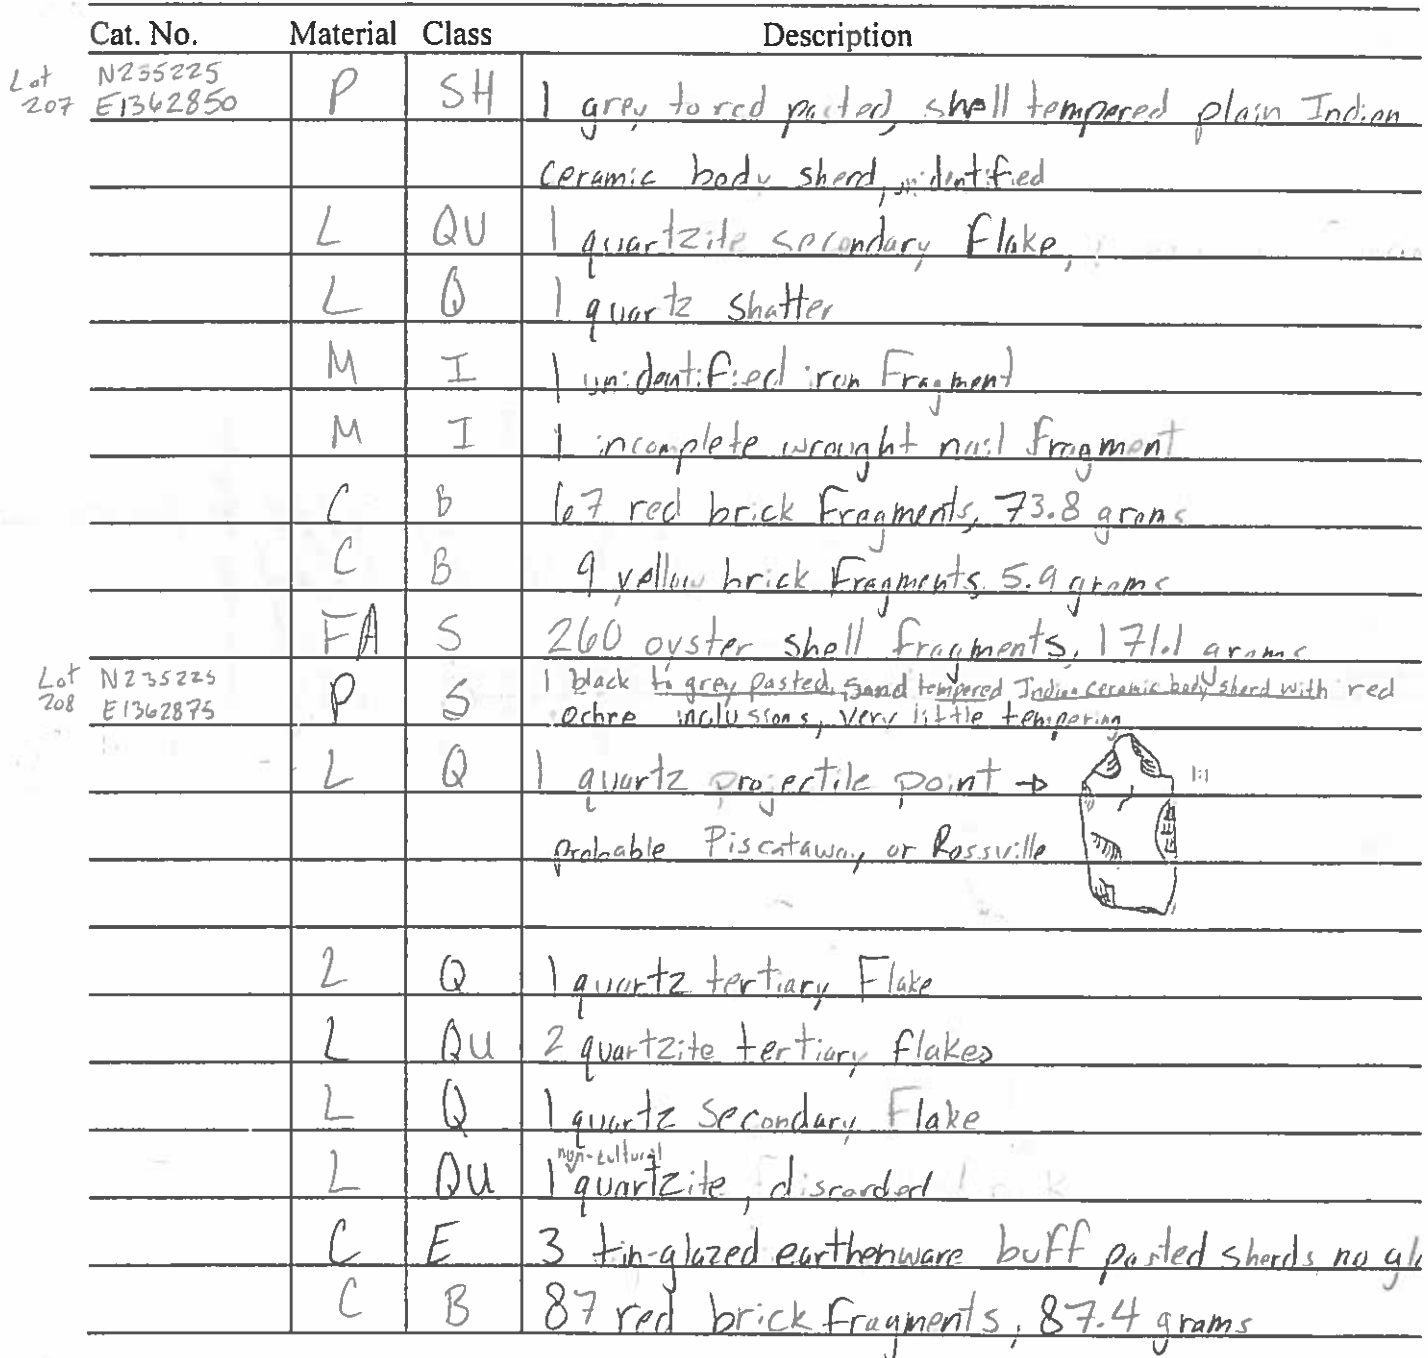 Cat. No. Material Class Description
Lot 207 N235225 E1362850 P SH 1 grey to red pasted, shell tempered plain Indian
ceramic body sherd, unidentified
L QU 1 quartzite secondary Flake,
L Q 1 quartz shatter
M I 1 unidentified iron Fragment
M I 1 incomplete wrought nail fragment
C B 67 red brick Fragments, 73.8 grams
C B 9 yellow brick Fragments, 5.9 grams
FA S 260 oyster shell fragments, 171.1 grams
Lot 208 N235225 E1362875 P S 1 black to grey pasted, sand tempered Indian ceramic body sherd with red
ochre inclusions, very little tempering
L Q 1 quartz projectile point → 1:1
probable Piscataway or Rossville
L Q 1 quartz tertiary Flake
L QU 2 quartzite tertiary flakes
L Q 1 quartz secondary Flake
non-cultural
L QU 1 quartzite, discarded
C E 3 tin-glazed earthenware buff pasted sherds no
C B 87 red brick fragments, 87.4 grams